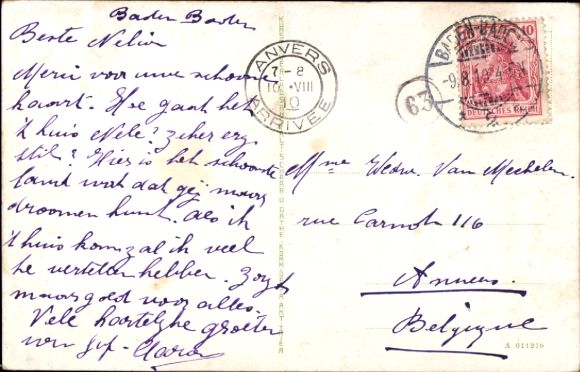 Baden Baden
Beste Nelie
Merci voor uwe schoone
kaart. Hoe gaat het
t'huis Nele? zeker erg
stil? Hier is het schoonste
land wat dat gij maar
droomen kunt. Als ik
t'huis kom zal ik veel
te vertellen hebben. Zorgt
maar goed voor alles.
Vele hartelijke groeten
van Juf.
ANVERS
7-8
10 VIII
10
ARRIVÉE
63
BADEN-BADEN
-9.8.10
10
DEUTSCHES REICH
Mme Wedw. Van Mechelen
rue Carnot 116
Anvers
Belgique
A 011270